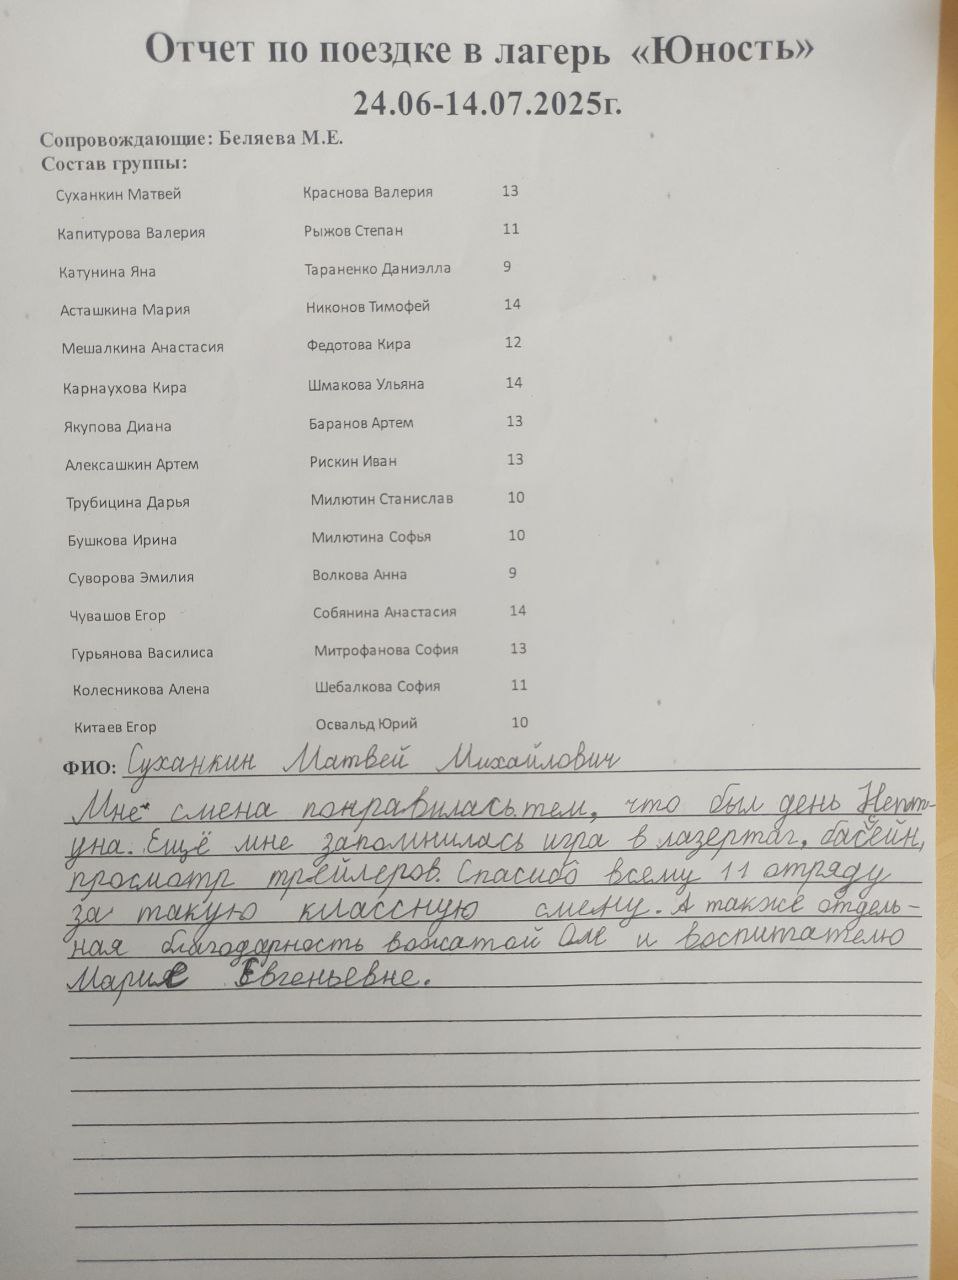 Отчет по поездке в лагерь «Юность»
24.06-14.07.2025г.
Сопровождающие: Беляева М.Е.
Состав группы:
Суханкин Матвей Краснова Валерия 13
Капитурова Валерия Рыжов Степан 11
Катунина Яна Тараненко Даниэлла 9
Асташкина Мария Никонов Тимофей 14
Мешалкина Анастасия Федотова Кира 12
Карнаухова Кира Шмакова Ульяна 14
Якупова Диана Баранов Артем 13
Алексашкин Артем Рискин Иван 13
Трубицина Дарья Милютин Станислав 10
Бушкова Ирина Милютина Софья 10
Суворова Эмилия Волкова Анна 9
Чувашов Егор Собянина Анастасия 14
Гурьянова Василиса Митрофанова София 13
Колесникова Алена Шебалкова София 11
Китаев Егор Освальд Юрий 10
ФИО: Суханкин Матвей Михайлович
Мне смена понравилась тем, что был день Непт-
уна. Ещё мне запомнилась игра в лазертаг, басейн,
просмотр трейлеров. Спасибо всему 11 отряду
за такую классную смену. А также отдель-
ная благодарность вожатой Оле и воспитателю
Марие Евгеньевне.